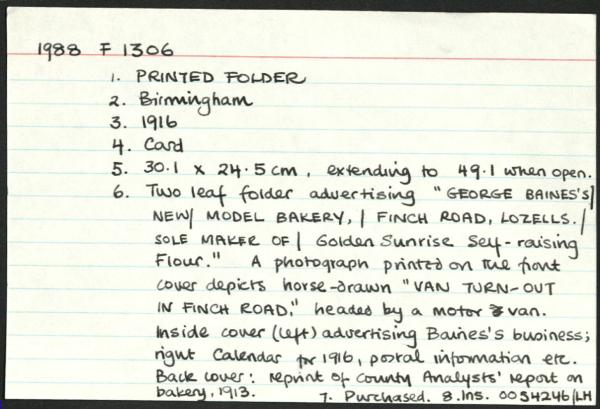 1988 F 1306
1. PRINTED FOLDER
2. Birmingham
3. 1916
4. Card
5. 30.1 x 24.5 cm, extending to 49.1 when open.
6. Two leaf folder advertising "GEORGE BAINES'S|
NEW| MODEL BAKERY, | FINCH ROAD, LOZELLS. |
SOLE MAKER OF | Golden Sunrise Self-raising
Flour." A photograph printed on the front
cover depicts horse-drawn "VAN TURN-OUT
IN FINCH ROAD," headed by a motor van.
Inside cover (left) advertising Baines's business;
right Calendar for 1916, postal information etc.
Back cover: reprint of County Analysts' report on
bakery, 1913. 7. Purchased. 8. Ins. 0054246/LH